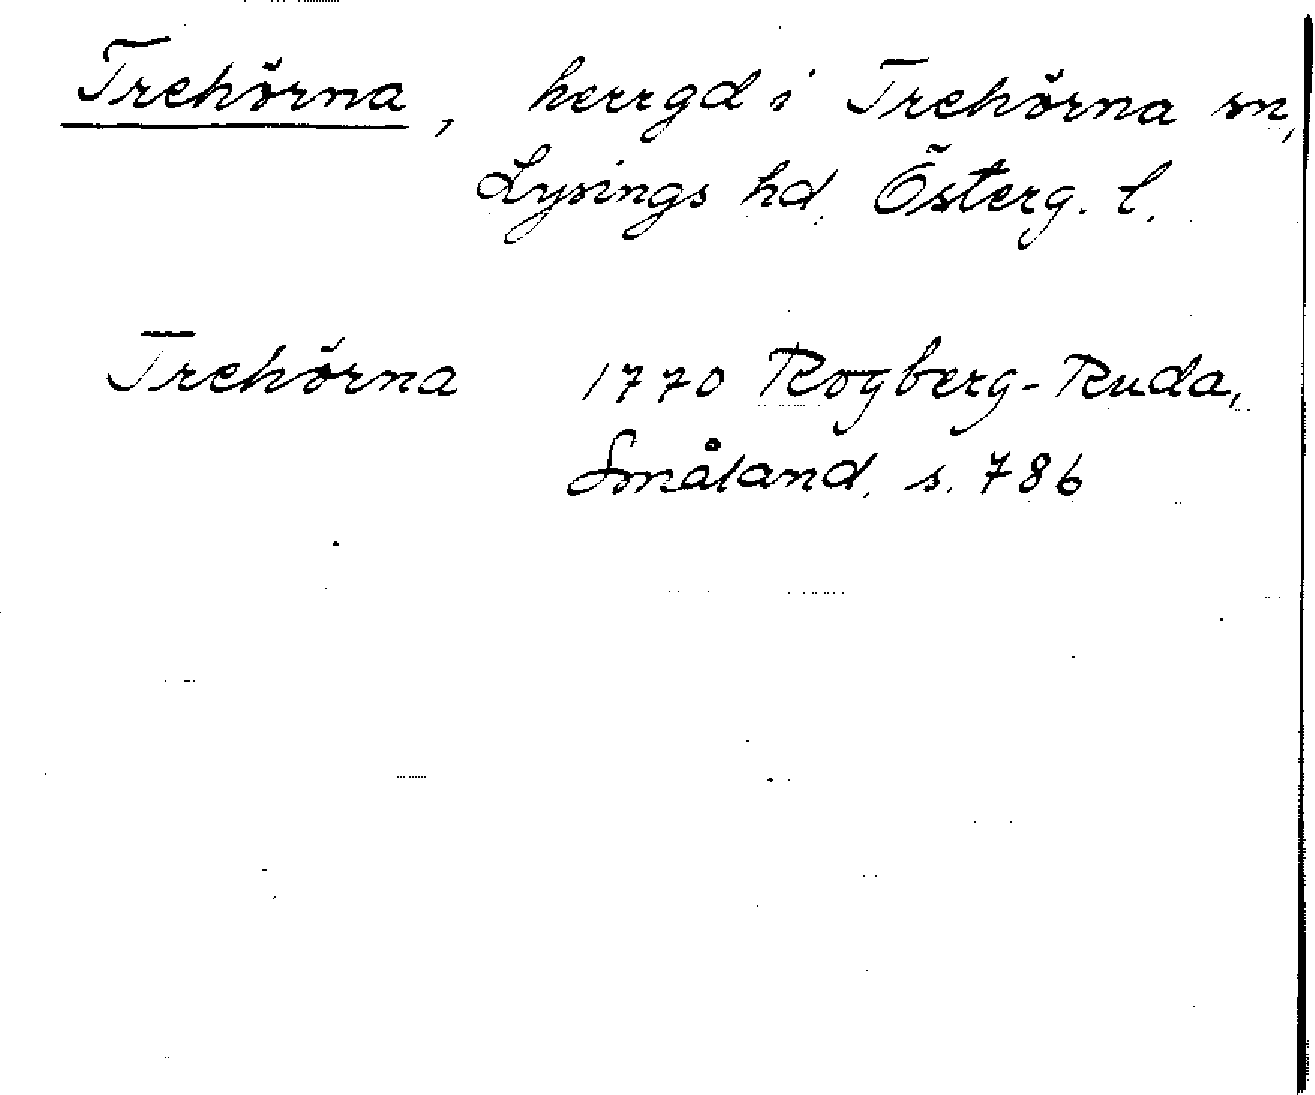 Trehörna, herrgd i Trehörna sn,
Lysings hd. Österg. l.
Trehörna 1770 Rogberg-Ruda,
Småland, s. 786